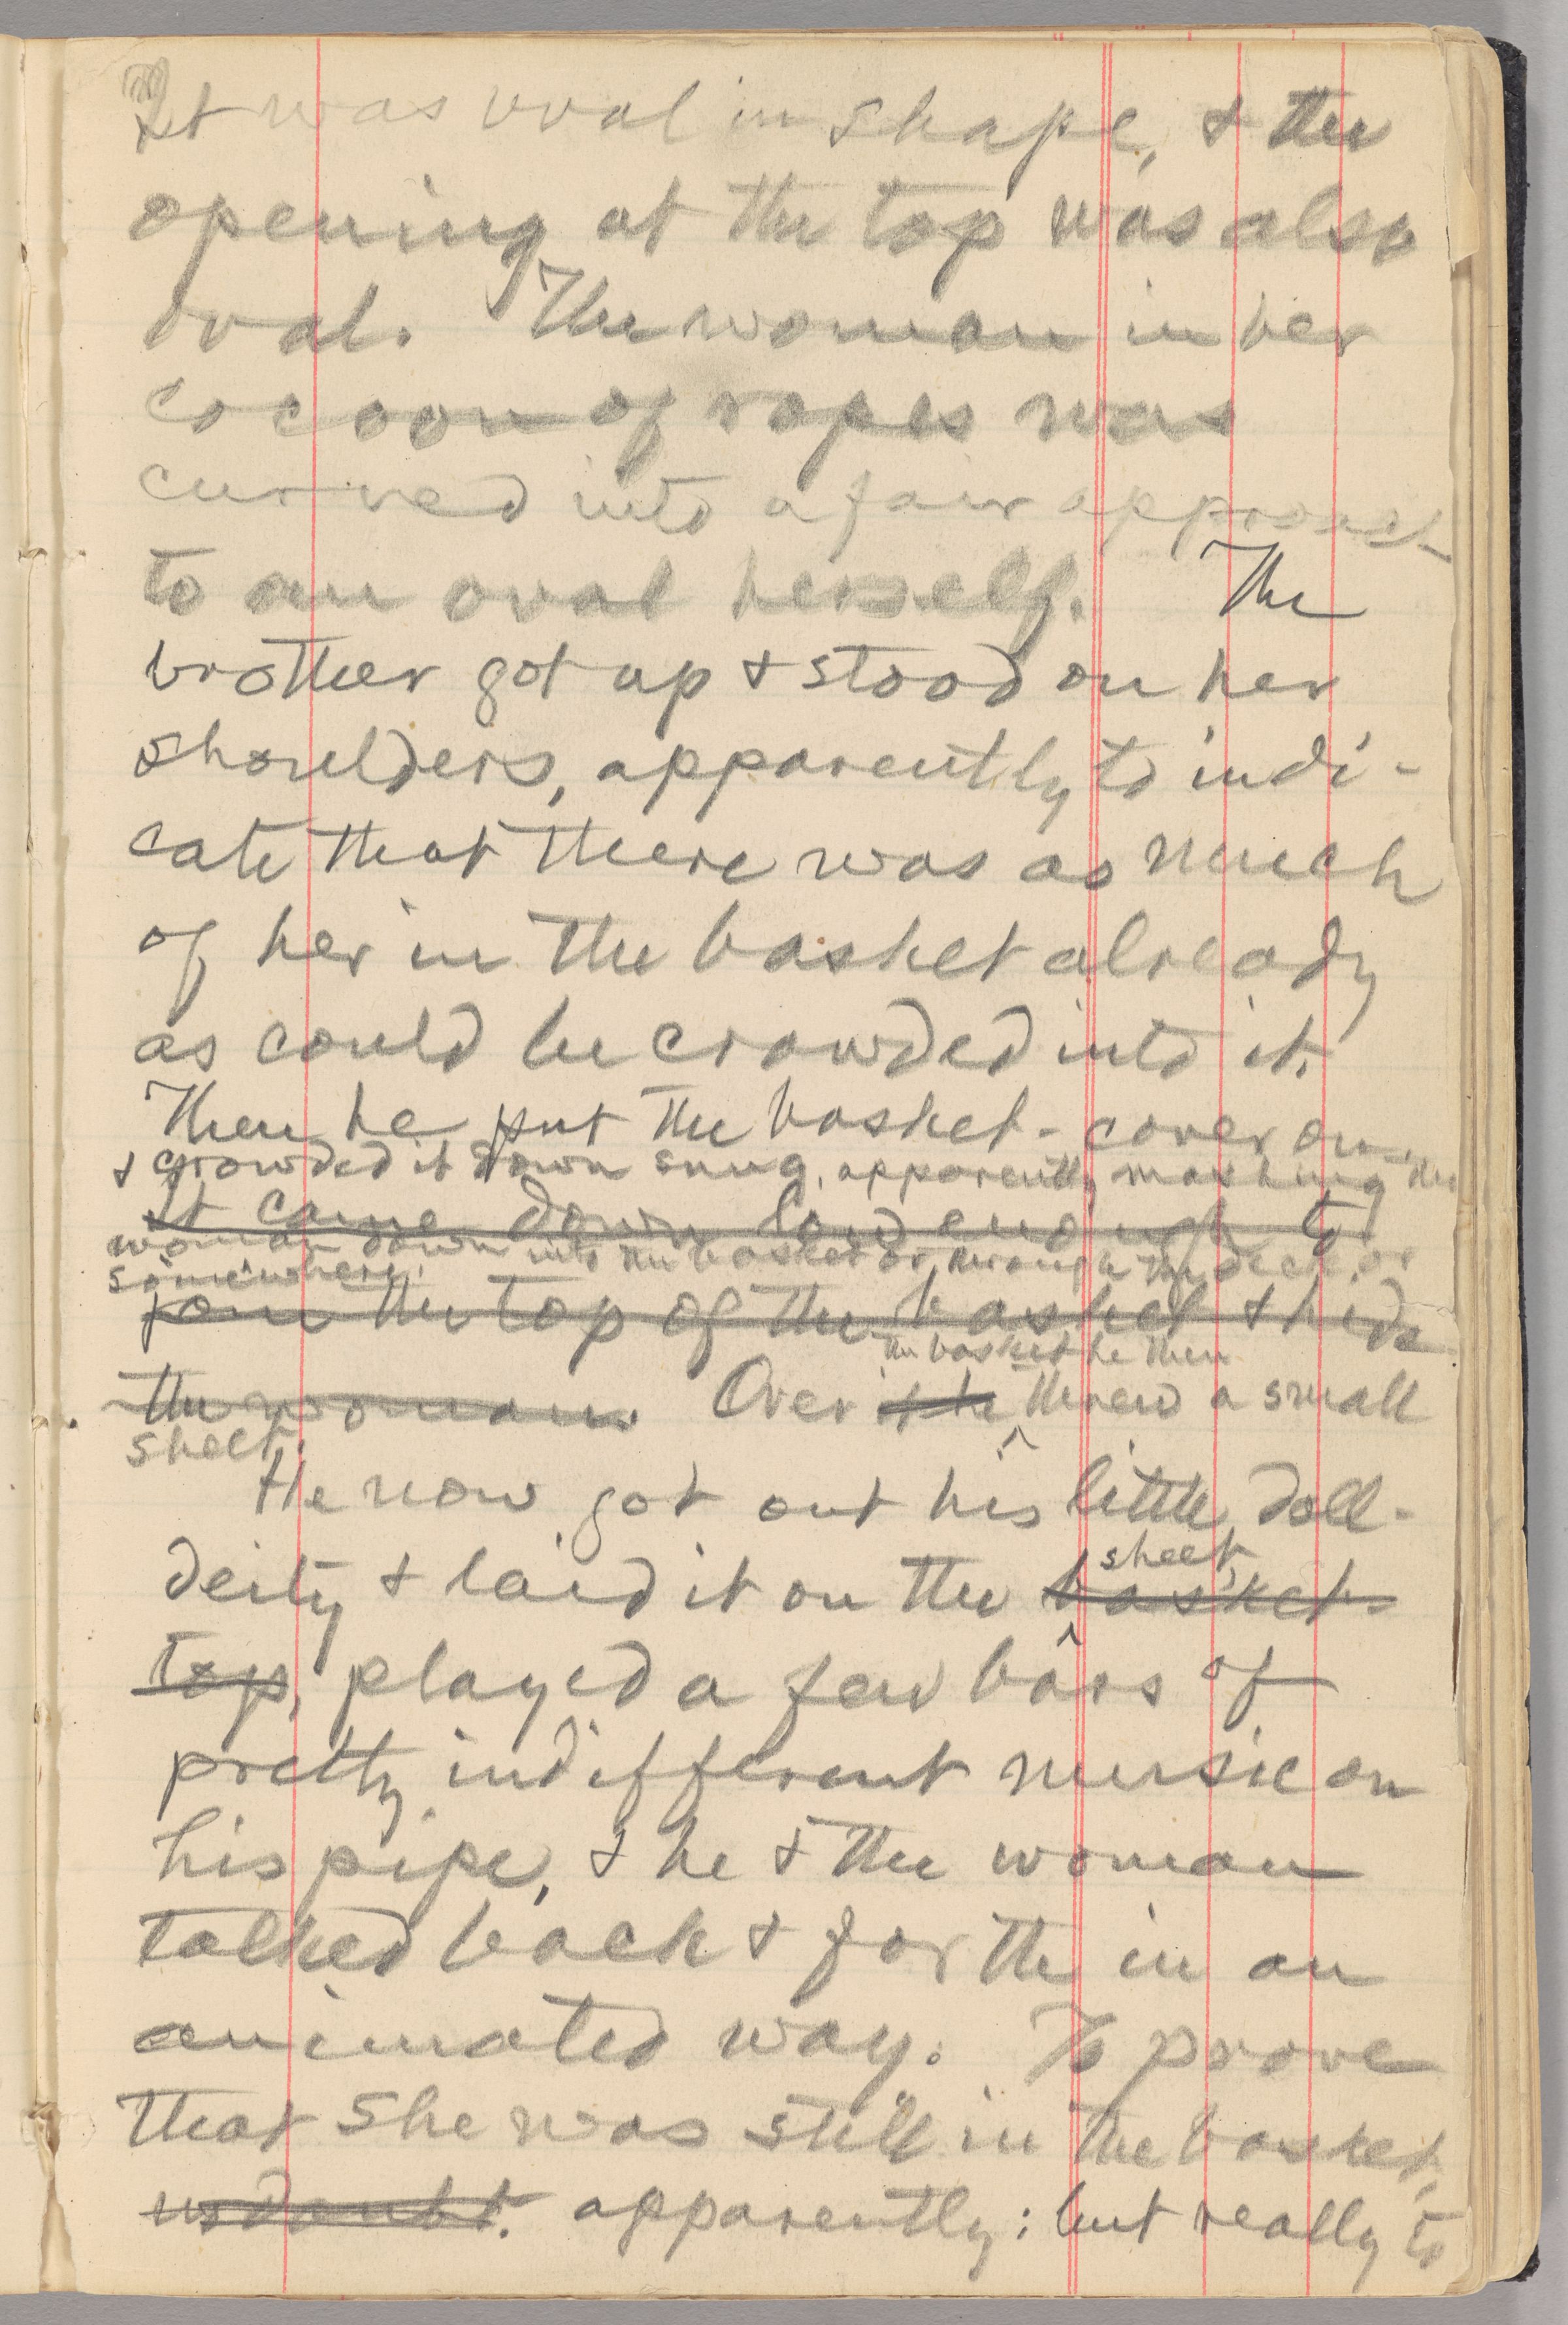 It was oval in shape, & the
opening at the top was also
oval. The woman in her
cocoon of ropes was
curved into a fair approach
to an oval herself. The
brother got up & stood on her
shoulders, apparently to indi-
cate that there was as much
of her in the basket already
as could be crowded into it.
Then he put the basket-cover on
& crowded it down snug, apparently mashing the
It came down low enough to
woman down into the basket or through the deck or
somewhere.
join the top of the basket & hide
the basket he then
the woman. Over it he threw a small
sheet.
He now got out his little doll-
sheet,
deity & laid it on the basket-
top, played a few bars of
pretty indifferent music on
his pipe, & he & the woman
talked back & forth in an
animated way. To prove
that she was still in the basket,
no doubt. apparently; but really to